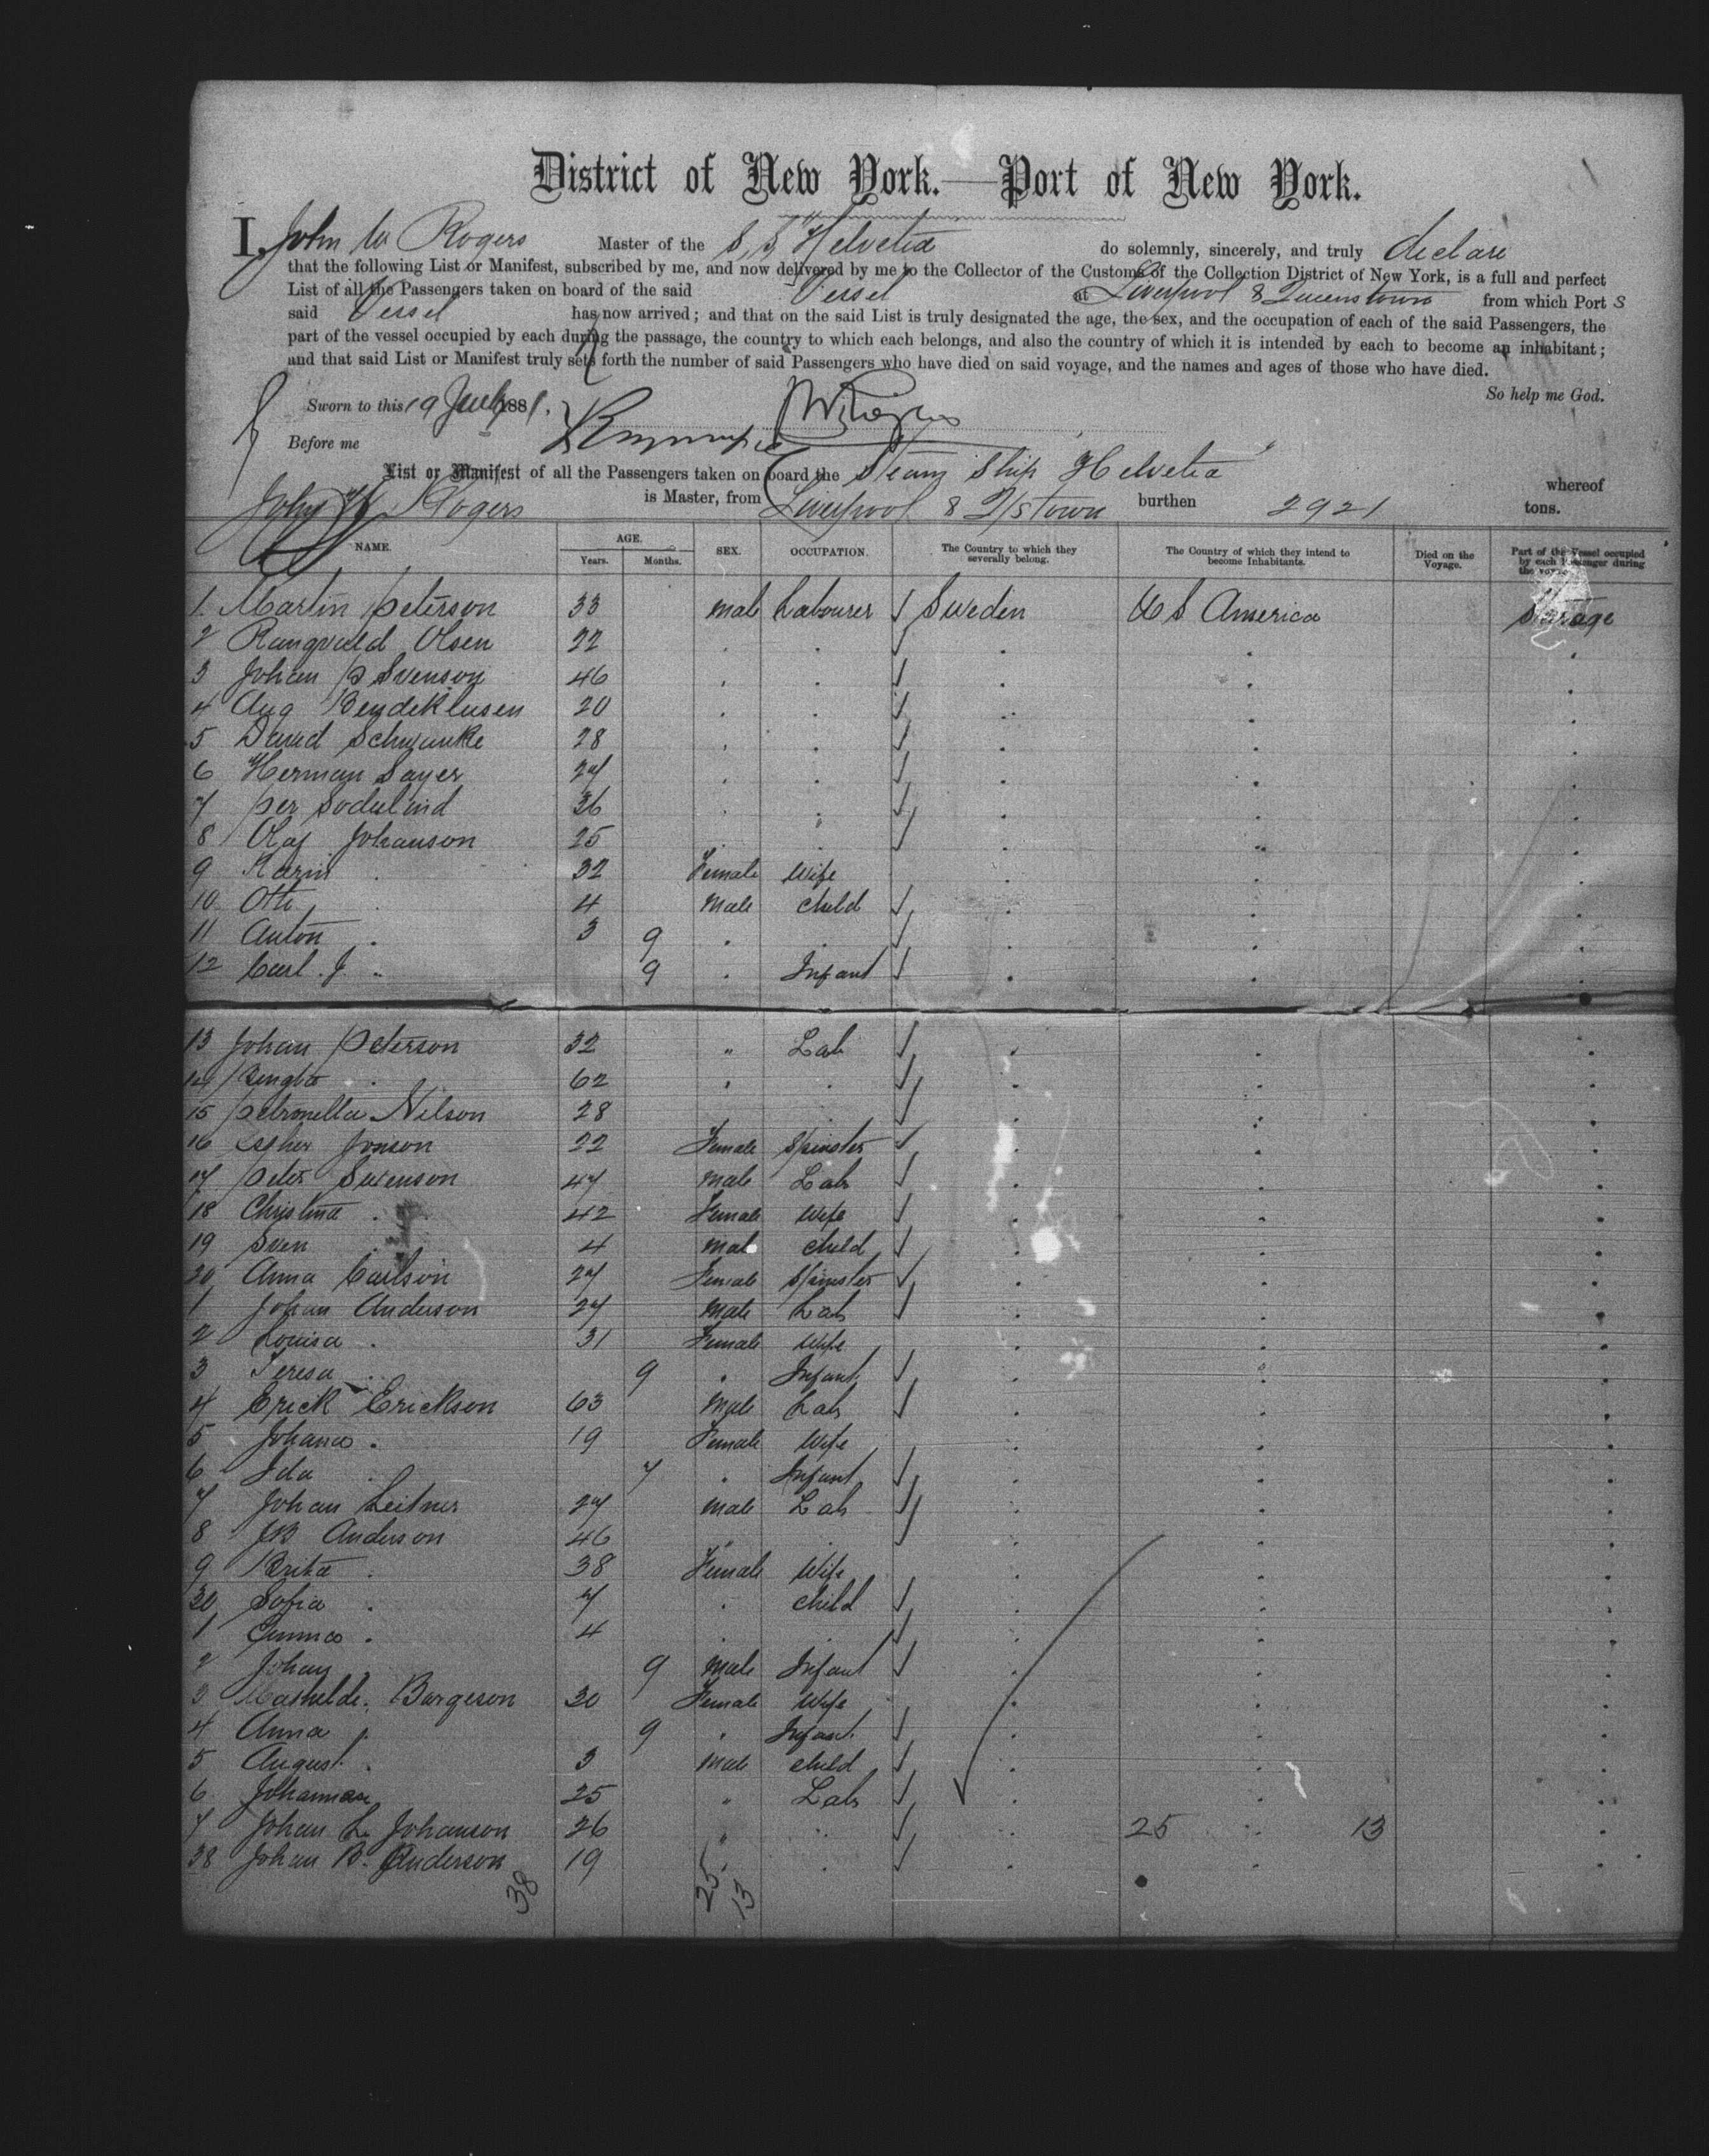 District of New York.—Port of New York.
I, John W Rogers Master of the S.S. Helvetia do solemnly, sincerely, and truly declare
that the following List or Manifest, subscribed by me, and now delivered by me to the Collector of the Customs of the Collection District of New York, is a full and perfect
List of all the Passengers taken on board of the said Vessel at Liverpool & Queenstown from which Port s
said Vessel has now arrived; and that on the said List is truly designated the age, the sex, and the occupation of each of the said Passengers, the
part of the vessel occupied by each during the passage, the country to which each belongs, and also the country of which it is intended by each to become an inhabitant;
and that said List or Manifest truly sets forth the number of said Passengers who have died on said voyage, and the names and ages of those who have died.
So help me God.
Sworn to this 19 July 1881. JW Rogers
Before me
List or Manifest of all the Passengers taken on board the Steam Ship "Helvetia" whereof
John W Rogers is Master, from Liverpool & Q/stown burthen 2921 tons.
NAME. AGE. SEX. OCCUPATION. The Country to which they severally belong. The Country of which they intend to become Inhabitants. Died on the Voyage. Part of the Vessel occupied by each Passenger during the voyage
Years. Months.
1 Martin Peterson 33 Male Labourer Sweden U S America Steerage
2 Rangvald Olsen 22
3 Johan P Svenson 46
4 Aug 20
5 David Schwanke 28
6 Herman Sayer 27
7 Per Soderlund 36
8 Olaf Johanson 25
9 Karin 32 Female Wife
10 Otto 4 Male Child
11 Anton 3 9
12 Carl J. " 9 Infant
13 Johan Peterson 32 " Lab
14 Bengta 62
15 Petronella Nilson 28
16 Esther Jonson 22 Female Spinster
17 Peter Swenson 47 Male Lab
18 Christina 42 Female Wife
19 Sven 4 Male Child
20 Anna Carlson 27 Female Spinster
1 Johan Anderson 27 Male Lab
2 Louisa 31 Female Wife
3 Teresa 9 Infant
4 Erick Erickson 63 Male Lab
5 Johanna 19 Female Wife
6 Ida 7 Infant
7 Johan Leitner 27 Male Lab
8 JB Anderson 46 "
9 Brita 38 Female Wife
30 Sofia 7 Child
1 Emma 4
2 Johan 9 Male Infant
3 Mathilde Burgeson 30 Female Wife
4 Anna 9 Infant
5 August 3 Male Child
6 25 " Lab
7 Johan L Johanson 26 " 25 13
38 Johan B. Anderson 19
38 25 13